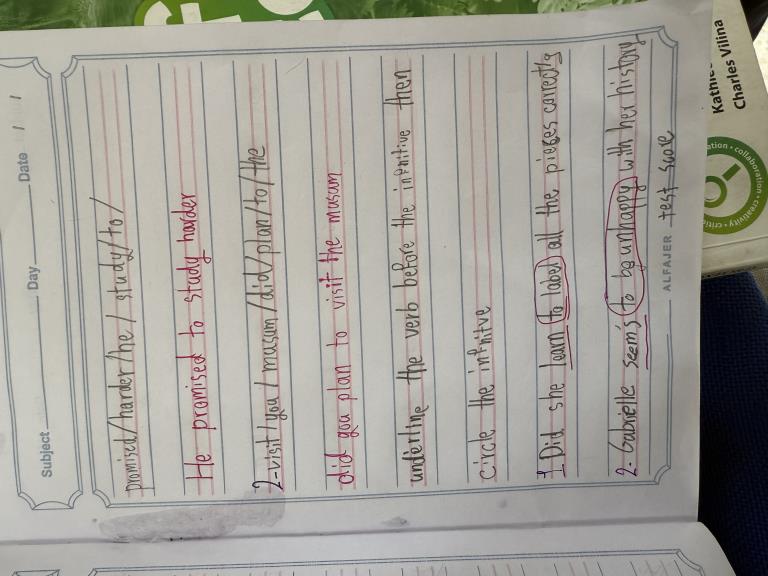 Subject Day Date / /
promised/harder/he/study/to/
He promised to study harder
2-visit/you/musam/did/plan/to/the
did you plan to visit the musam
underline the verb before the infinitive then
circle the infinitve
1 Did she learn to label all the pieces correctly
2- Gabrielle seem's to be unhappy with her history
ALFAJER test score
Charles Vilina
collaboration • creativity •